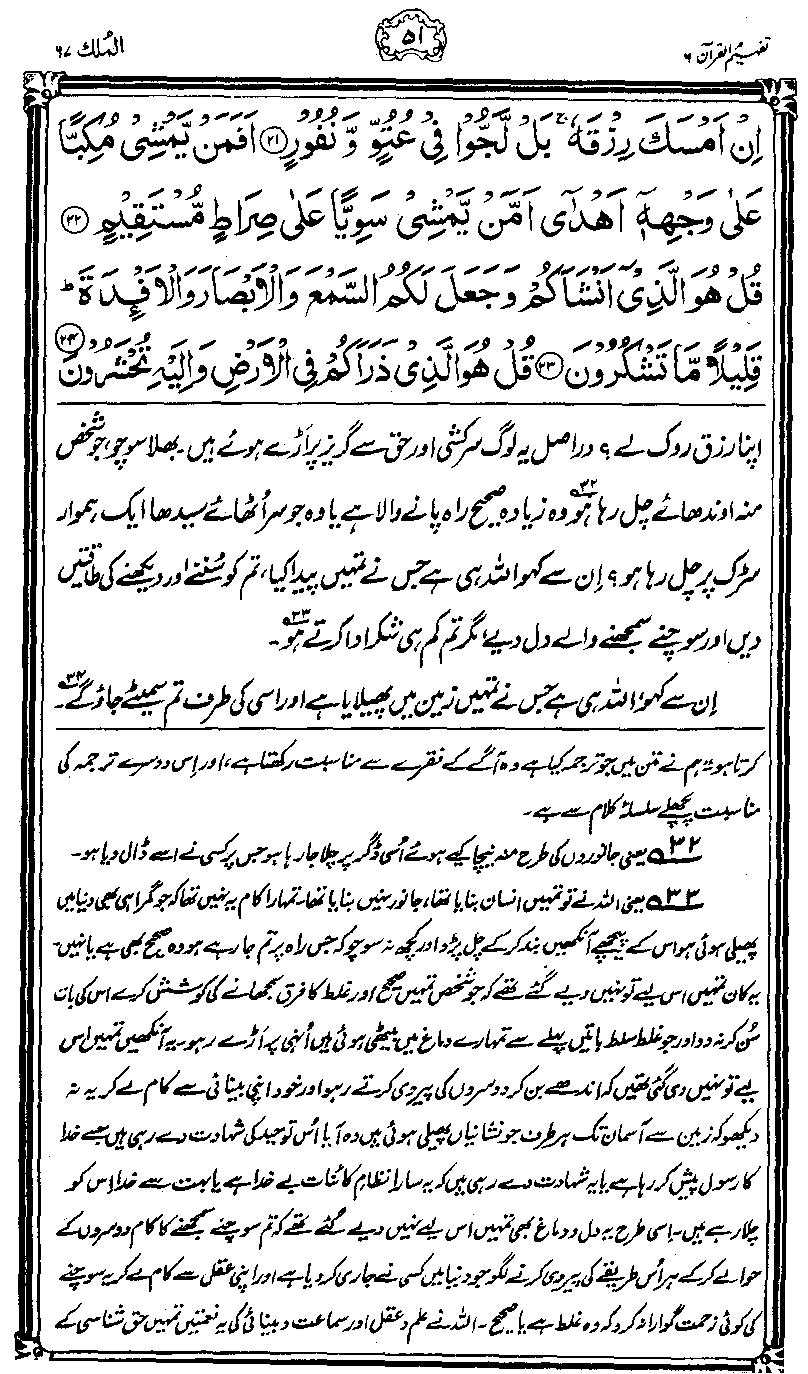 تفہیم القرآن ۶
۵۱
الملک ۶۷
اِنْ اَمْسَكَ رِزْقَهٗ ۚ بَلْ لَّجُّوْا فِیْ عُتُوٍّ وَّ نُفُوْرٍ ﴿۲۱﴾ اَفَمَنْ یَّمْشِیْ مُكِبًّا
عَلٰی وَجْهِهٖۤ اَهْدٰۤی اَمَّنْ یَّمْشِیْ سَوِیًّا عَلٰی صِرَاطٍ مُّسْتَقِیْمٍ ﴿۲۲﴾
قُلْ هُوَ الَّذِیْۤ اَنْشَاَكُمْ وَ جَعَلَ لَكُمُ السَّمْعَ وَ الْاَبْصَارَ وَ الْاَفْـِٕدَةَ ؕ
قَلِیْلًا مَّا تَشْكُرُوْنَ ﴿۲۳﴾ قُلْ هُوَ الَّذِیْ ذَرَاَكُمْ فِی الْاَرْضِ وَ اِلَیْهِ تُحْشَرُوْنَ ﴿۲۴﴾
اپنا رزق روک لے؟ دراصل یہ لوگ سرکشی اور حق سے گریز پر اَڑے ہوئے ہیں۔ بھلا سوچو، جو شخص
منہ اوندھائے چل رہا ہو۳۲ وہ زیادہ صحیح راہ پانے والا ہے یا وہ جو سر اُٹھائے سیدھا ایک ہموار
سڑک پر چل رہا ہو؟ اِن سے کہو اللہ ہی ہے جس نے تمہیں پیدا کیا، تم کو سُننے اور دیکھنے کی طاقتیں
دیں اور سوچنے سمجھنے والے دل دیے، مگر تم کم ہی شکر ادا کرتے ہو۳۳۔
اِن سے کہو، اللہ ہی ہے جس نے تمہیں زمین میں پھیلایا ہے اور اسی کی طرف تم سمیٹے جاؤ گے۳۴۔
کرتا ہو“؟ ہم نے متن میں جو ترجمہ کیا ہے وہ آگے کے فقرے سے مناسبت رکھتا ہے، اور اِس دوسرے ترجمہ کی
مناسبت پچھلے سلسلۂ کلام سے ہے۔
۳۲ یعنی جانوروں کی طرح منہ نیچا کیے ہوئے اُسی ڈگر پر چلا جا رہا ہو جس پر کسی نے اسے ڈال دیا ہو۔
۳۳ یعنی اللہ نے تو تمہیں انسان بنایا تھا، جانور نہیں بنایا تھا۔ تمہارا کام یہ نہیں تھا کہ جو گمراہی بھی دنیا میں
پھیلی ہوئی ہو اس کے پیچھے آنکھیں بند کر کے چل پڑو اور کچھ نہ سوچو کہ جس راہ پر تم جا رہے ہو وہ صحیح بھی ہے یا نہیں۔
یہ کان تمہیں اس لیے تو نہیں دیے گئے تھے کہ جو شخص تمہیں صحیح اور غلط کا فرق سمجھانے کی کوشش کرے اس کی بات
سُن کر نہ دو اور جو غلط سلط باتیں پہلے سے تمہارے دماغ میں بیٹھی ہوئی ہیں اُنہی پر اَڑے رہو۔ یہ آنکھیں تمہیں اس
لیے تو نہیں دی گئی تھیں کہ اندھے بن کر دوسروں کی پیروی کرتے رہو اور خود اپنی بینائی سے کام لے کر یہ نہ
دیکھو کہ زمین سے آسمان تک ہر طرف جو نشانیاں پھیلی ہوئی ہیں وہ آیا اُس توحید کی شہادت دے رہی ہیں جسے خدا
کا رسول پیش کر رہا ہے یا یہ شہادت دے رہی ہیں کہ یہ سارا نظامِ کائنات بے خدا ہے یا بہت سے خدا اِس کو
چلا رہے ہیں۔ اِسی طرح یہ دل و دماغ بھی تمہیں اس لیے نہیں دیے گئے تھے کہ تم سوچنے سمجھنے کا کام دوسروں کے
حوالے کر کے ہر اُس طریقے کی پیروی کرنے لگو جو دنیا میں کسی نے جاری کر دیا ہے اور اپنی عقل سے کام لے کر یہ سوچنے
کی کوئی زحمت گوارا نہ کرو کہ وہ غلط ہے یا صحیح۔ اللہ نے علم و عقل اور سماعت و بینائی کی یہ نعمتیں تمہیں حق شناسی کے